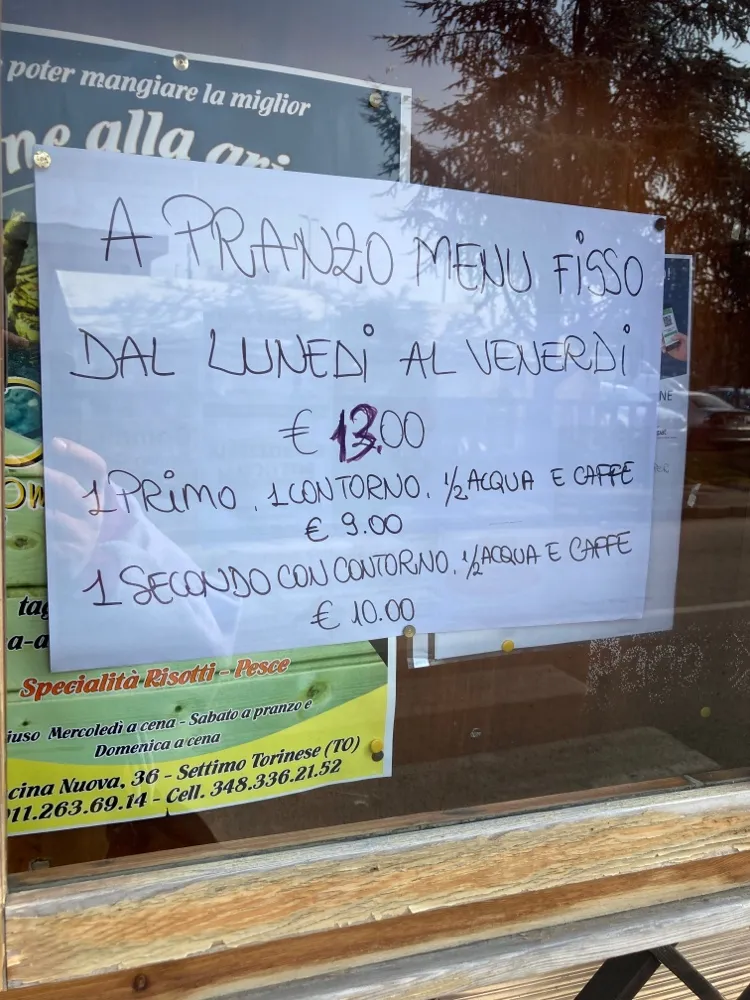 poter mangiare la miglior
alla
A PRANZO MENU FISSO
DAL LUNEDì AL VENERDì
€ 13.00
1 PRIMO. 1 CONTORNO. 1/2 ACQUA E CAFFE
€ 9.00
1 SECONDO CON CONTORNO. 1/2 ACQUA E CAFFE
€ 10.00
Specialità Risotti - Pesce
iuso Mercoledì a cena - Sabato a pranzo e
Domenica a cena
cina Nuova, 36 - Settimo Torinese (TO)
011.263.69.14 - Cell. 348.336.21.52